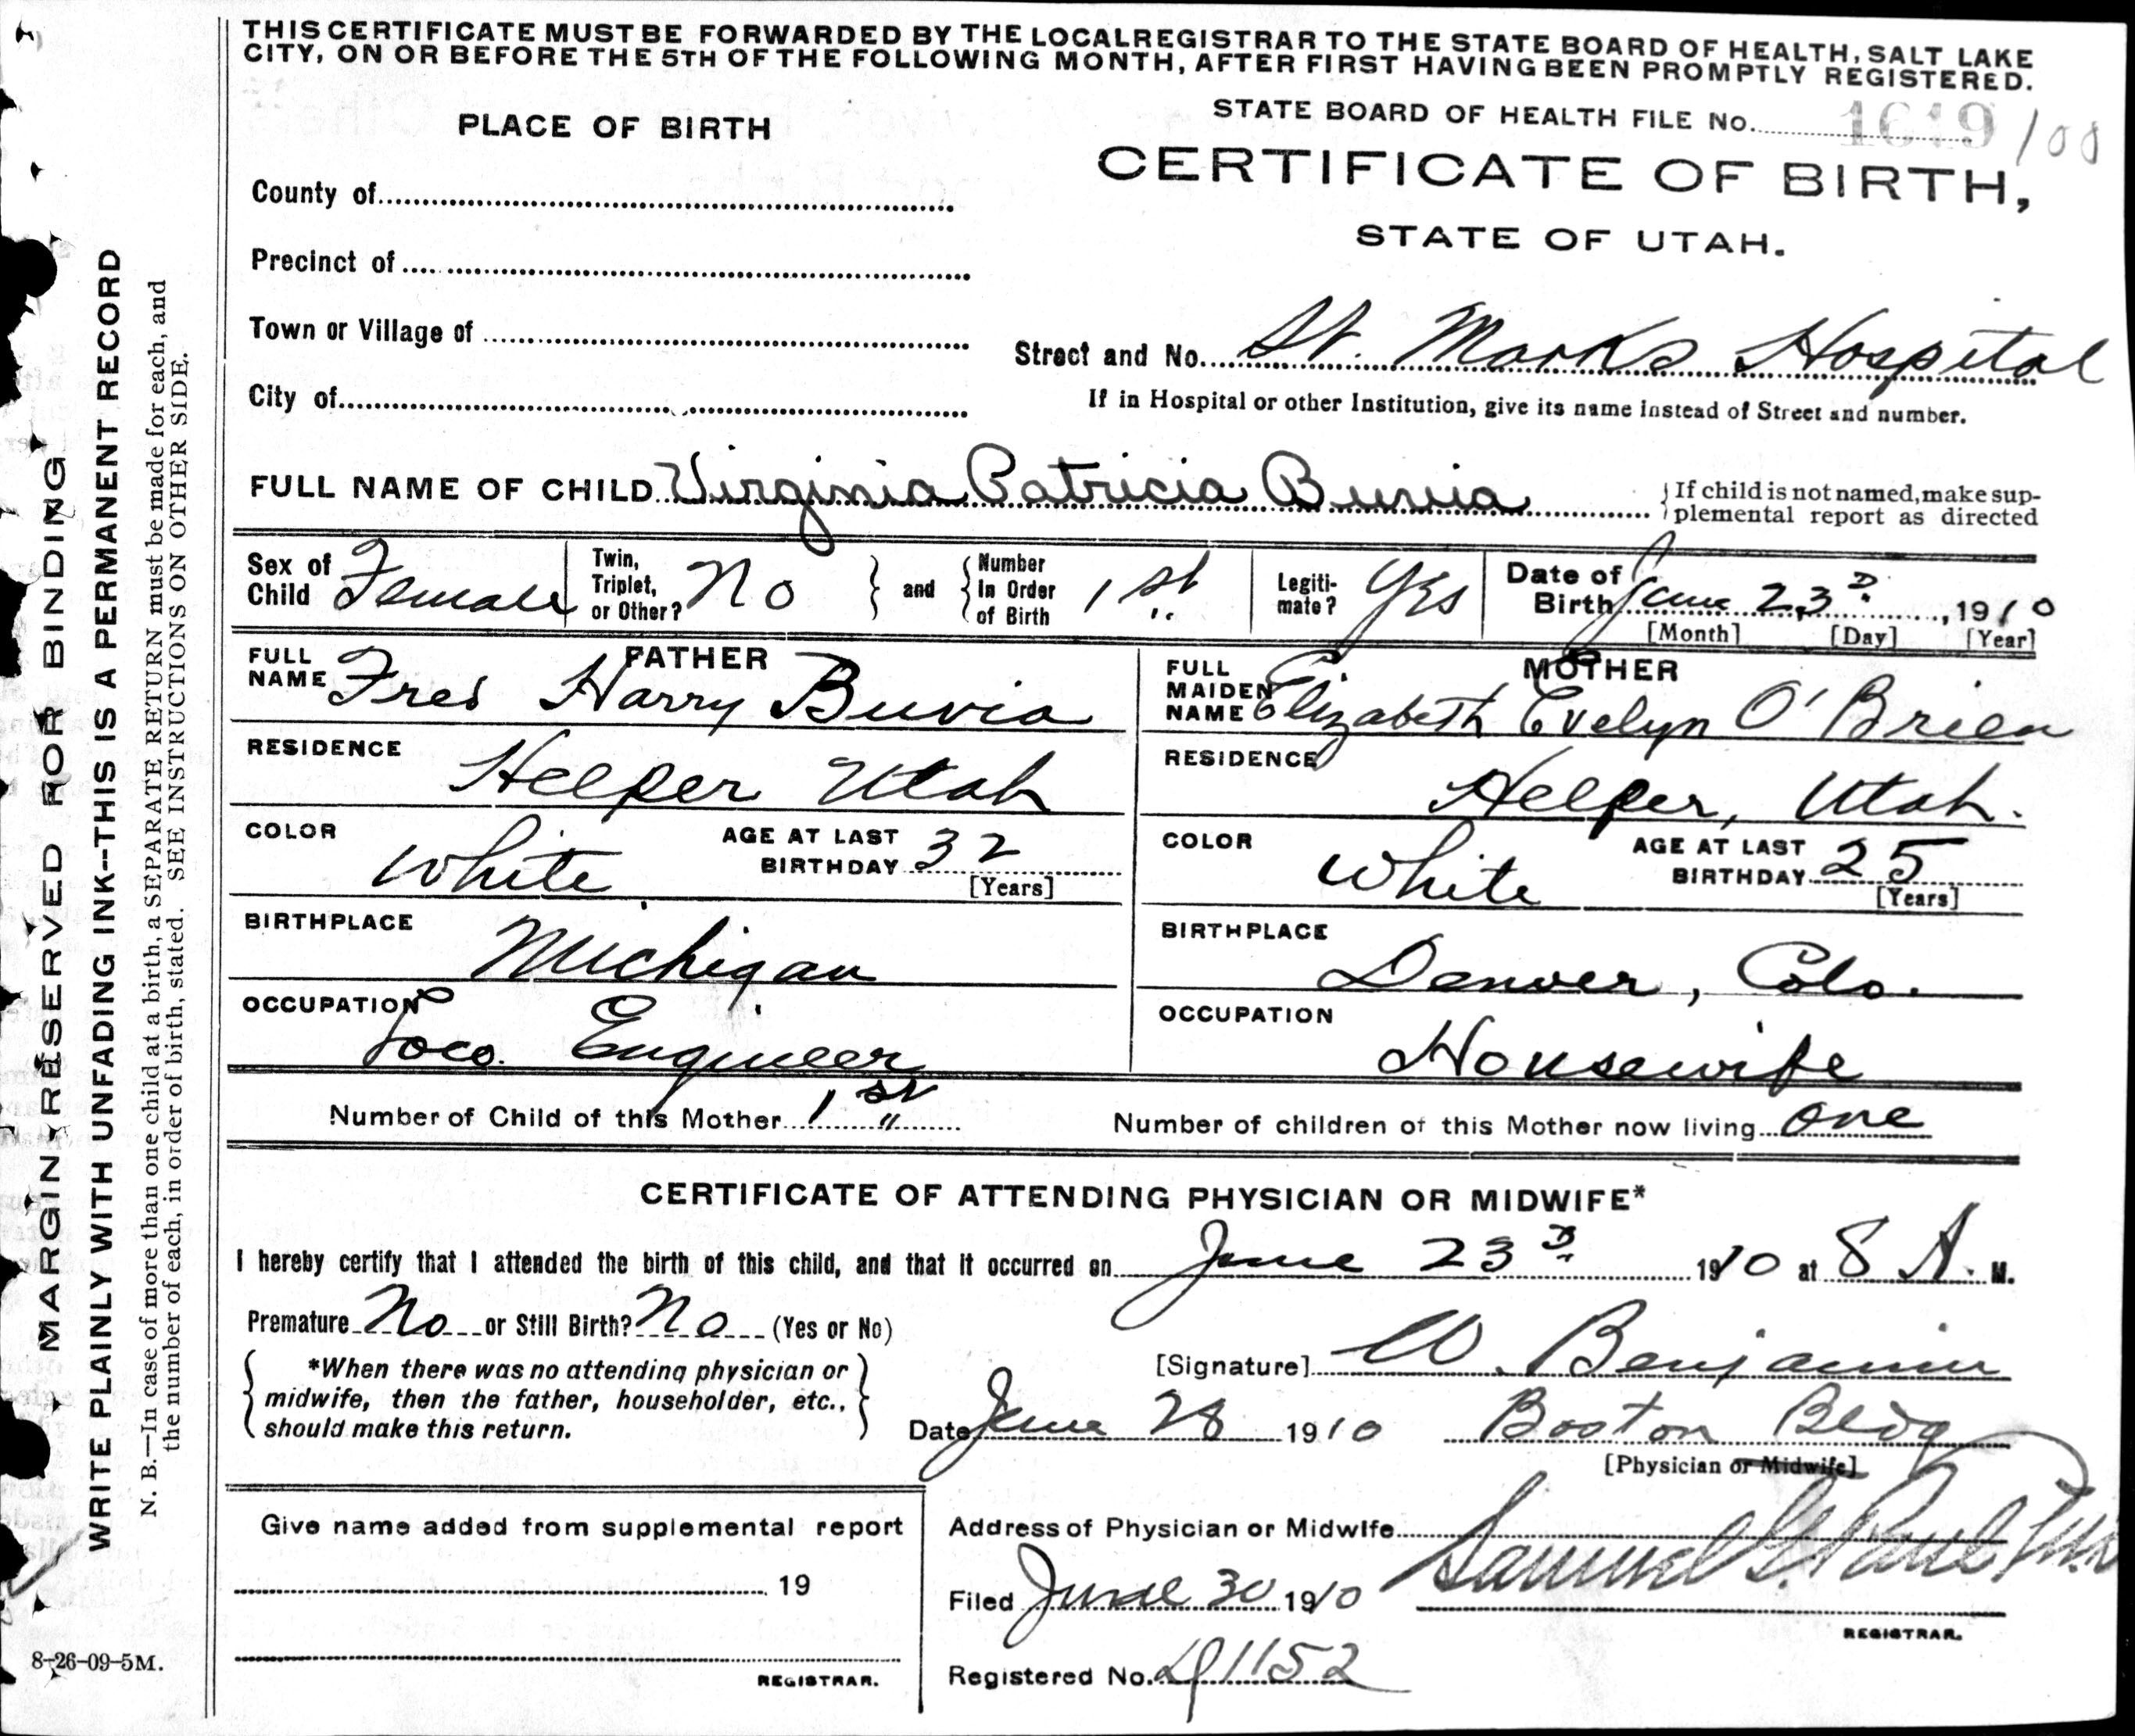 THIS CERTIFICATE MUST BE FORWARDED BY THE LOCALREGISTRAR TO THE STATE BOARD OF HEALTH, SALT LAKE
CITY, ON OR BEFORE THE 5TH OF THE FOLLOWING MONTH, AFTER FIRST HAVING BEEN PROMPTLY REGISTERED.
STATE BOARD OF HEALTH FILE No. 1619/00
PLACE OF BIRTH
CERTIFICATE OF BIRTH,
STATE OF UTAH.
County of
Precinct of
Town or Village of
Street and No. St. Marks Hospital
City of
If in Hospital or other Institution, give its name instead of Street and number.
FULL NAME OF CHILD Virginia Patricia Buvia
If child is not named, make sup-
plemental report as directed
Sex of Child Female
Twin, Triplet, or Other? No
and
Number In Order of Birth 1st
Legiti-mate? Yes
Date of Birth June 23D, 1910
[Month] [Day] [Year]
FATHER
FULL NAME Fred Harry Buvia
RESIDENCE
Helper Utah
COLOR White AGE AT LAST BIRTHDAY 32
[Years]
BIRTHPLACE
Michigan
OCCUPATION
Loco. Engineer
MOTHER
FULL MAIDEN NAME Elizabeth Evelyn O'Brien
RESIDENCE
Helper, Utah.
COLOR White AGE AT LAST BIRTHDAY 25
[Years]
BIRTHPLACE
Denver, Colo.
OCCUPATION
Housewife
Number of Child of this Mother 1st
Number of children of this Mother now living one
CERTIFICATE OF ATTENDING PHYSICIAN OR MIDWIFE*
I hereby certify that I attended the birth of this child, and that it occurred on June 23D 1910 at 8 A. M.
Premature No or Still Birth? No (Yes or No)
*When there was no attending physician or
midwife, then the father, householder, etc.,
should make this return.
[Signature] W. Benjamin
Date June 28 1910 Boston Bldg
[Physician or Midwife]
Give name added from supplemental report
19
REGISTRAR.
Address of Physician or Midwife
Samuel G. Paul
Filed June 30 1910
REGISTRAR.
Registered No. 1152
MARGIN RESERVED FOR BINDING
WRITE PLAINLY WITH UNFADING INK--THIS IS A PERMANENT RECORD
N. B.—In case of more than one child at a birth, a SEPARATE RETURN must be made for each, and
the number of each, in order of birth, stated. SEE INSTRUCTIONS ON OTHER SIDE.
8-26-09-5M.